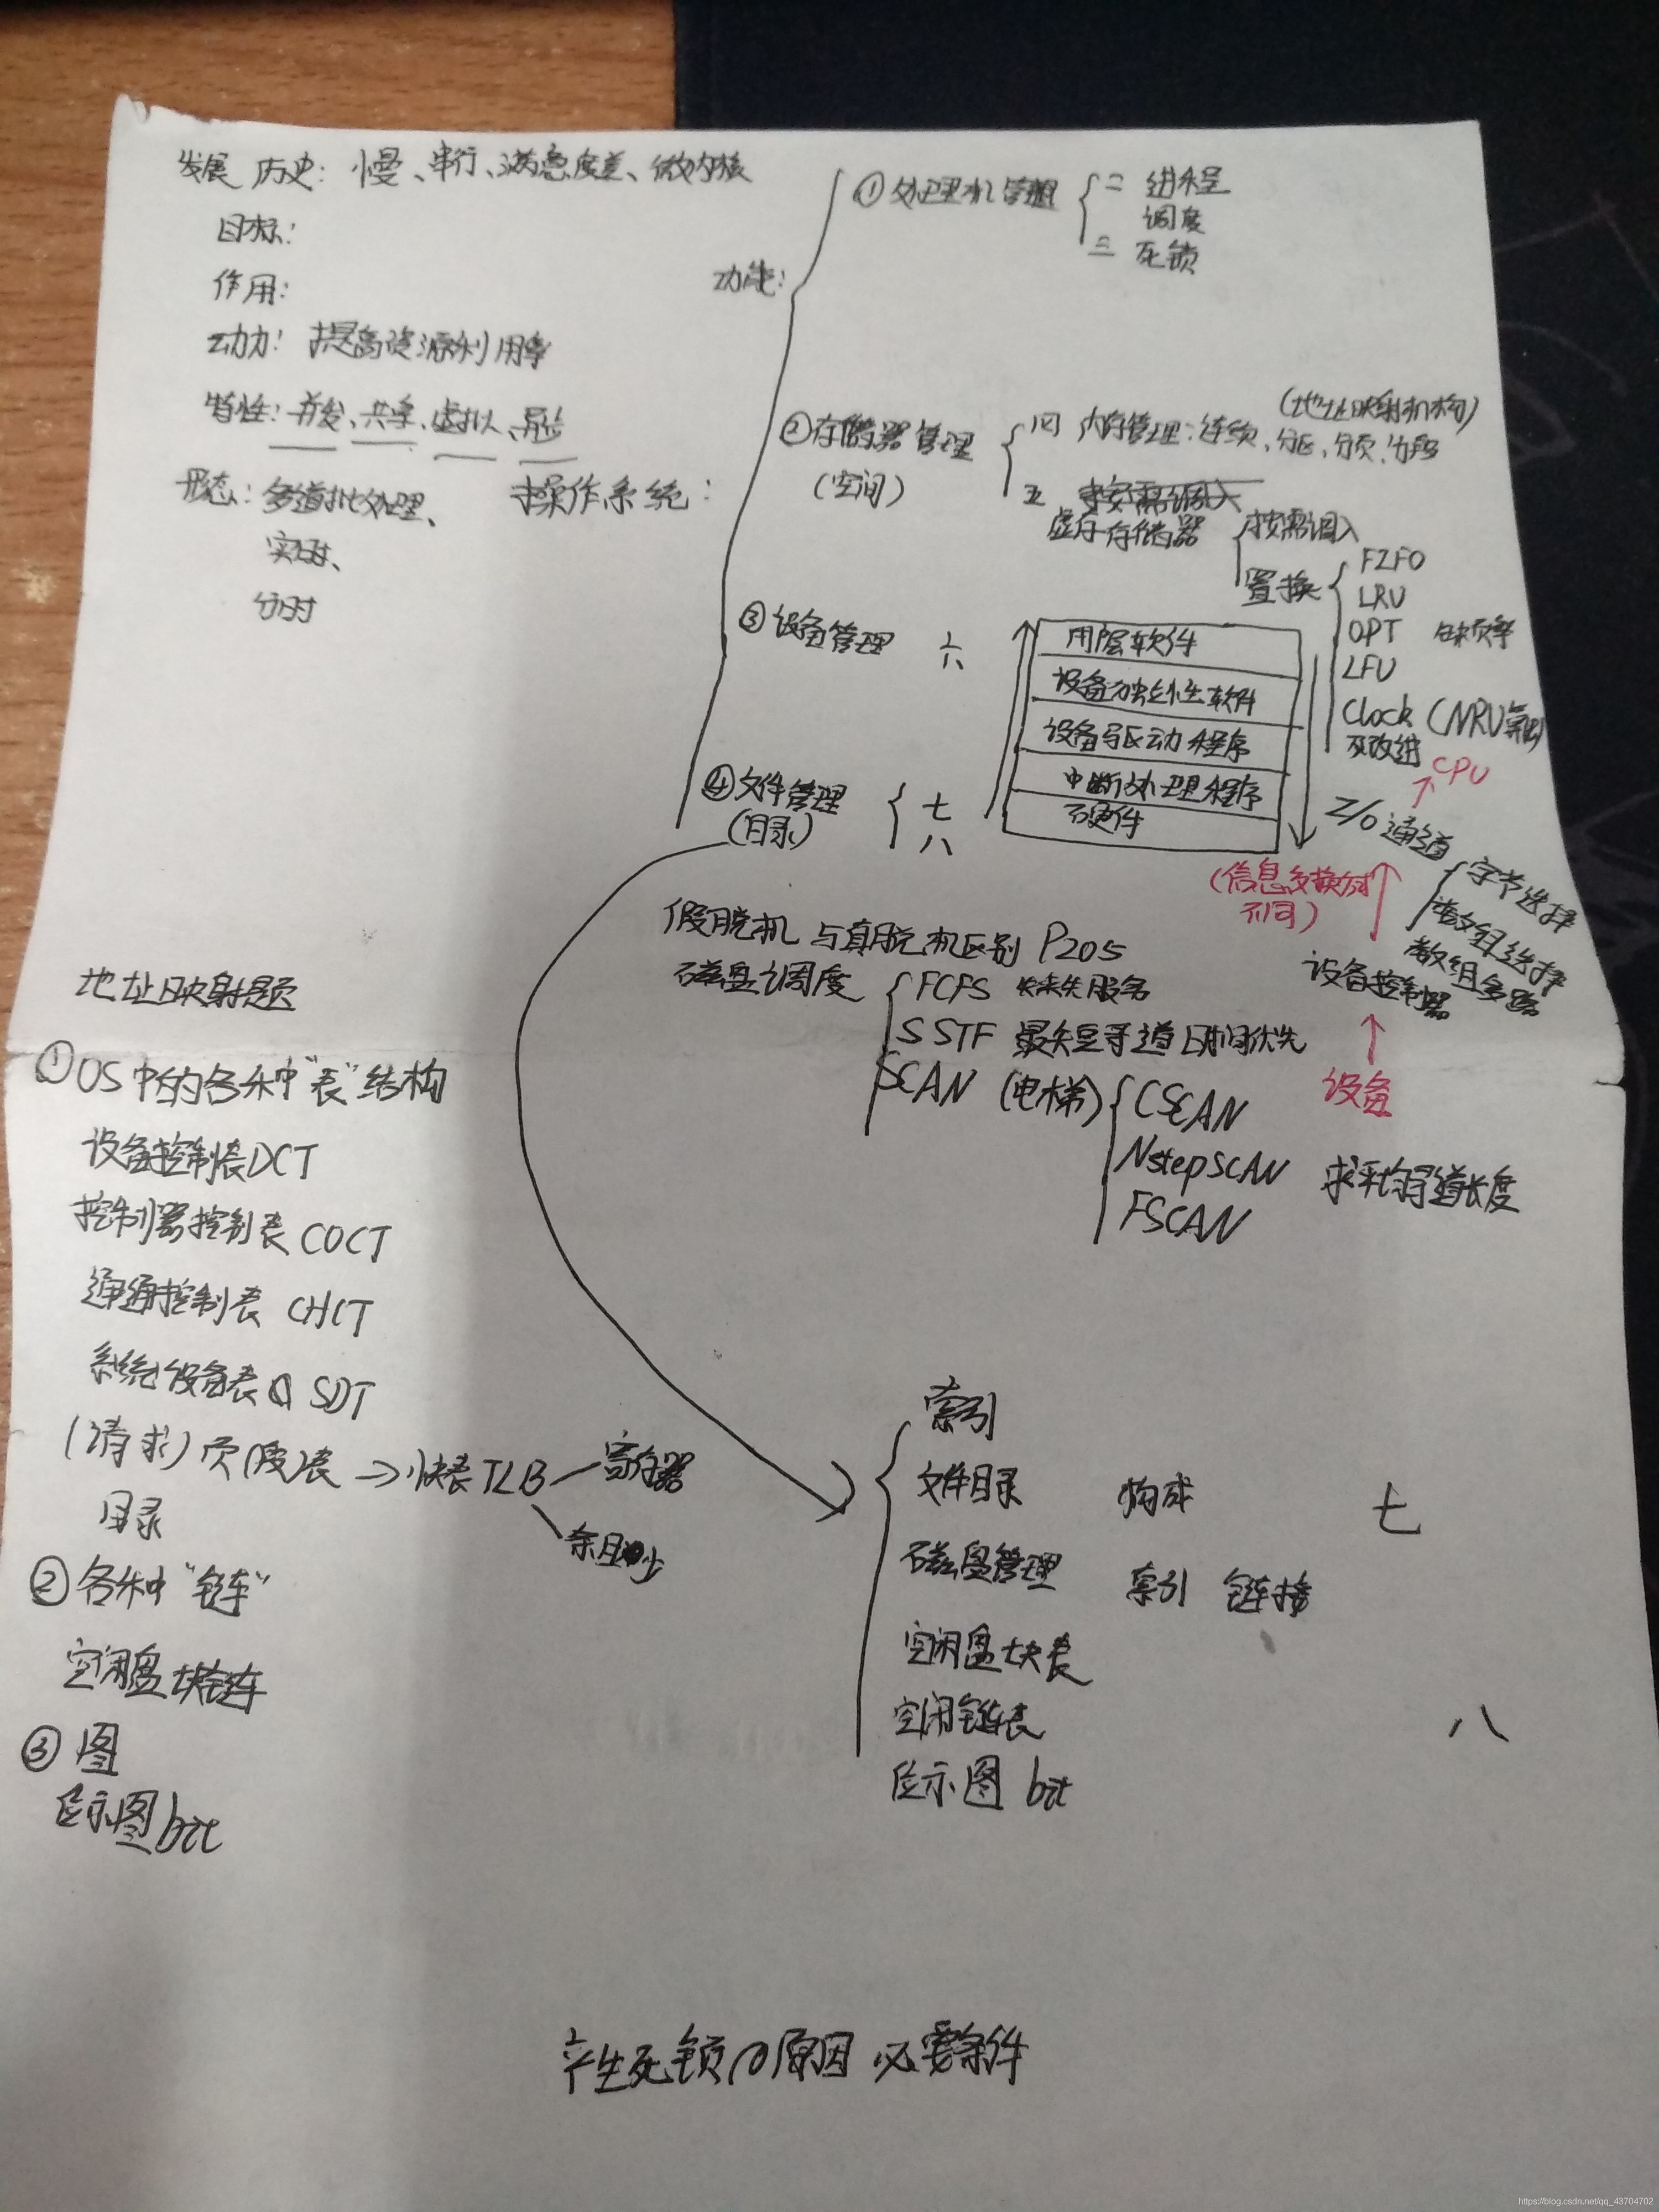 发展 历史: 慢、串行、满意度差、微内核
目标:
作用:
动力: 提高资源利用率
特性: 并发、共享、虚拟、异步
形态: 多道批处理、
实时、
分时
操作系统:
功能:
①处理机管理
二 进程
调度
三 死锁
②存储器管理
(空间)
(地址映射机构)
四 内存管理: 连续、分区、分页、分段
五 按需调入
虚存存储器
按需调入
置换
FIFO
LRU
OPT 缺页率
LFU
Clock (NRU算法)
及改进
③设备管理 六
用层软件
设备独立性软件
设备驱动程序
中断处理程序
硬件
CPU
I/O通道
字节选择
数组选择
数组多路
(信息交换方式
不同)
设备控制器
设备
④文件管理
(目录)
七
八
假脱机与真脱机区别 P205
磁盘调度
FCFS 先来先服务
SSTF 最短寻道时间优先
SCAN (电梯)
CSCAN
NstepSCAN 求平均寻道长度
FSCAN
地址映射题
①OS中的各种"表"结构
设备控制表DCT
控制器控制表 COCT
通道控制表 CHCT
系统设备表 SDT
(请求)页(段)表 → 快表TLB
寄存器
条目少
目录
②各种"链"
空闲盘块链
③图
位示图bit
索引
文件目录 构成 七
磁盘管理 索引 链接
空闲盘块表
空闲链表 八
位示图 bit
产生死锁的原因 必要条件
https://blog.csdn.net/qq_43704702